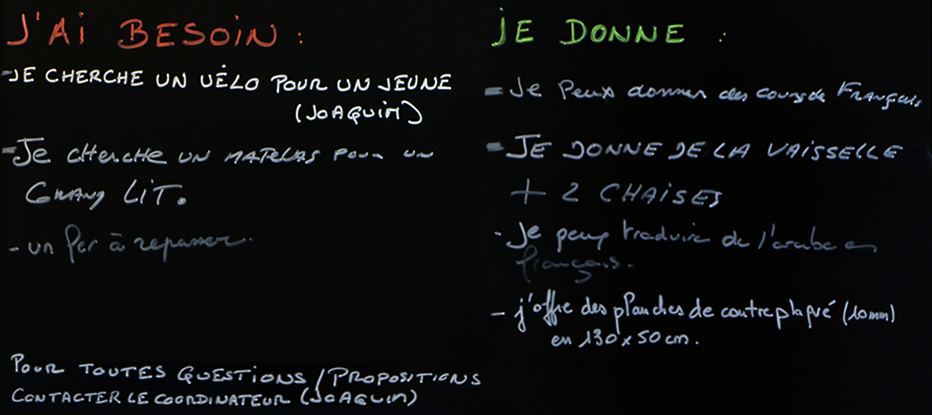 J'AI BESOIN :
- JE CHERCHE UN VÉLO POUR UN JEUNE
(JOAQUIM)
- Je cherche un matelas pour un
Grand LIT.
- un fer à repasser.
POUR TOUTES QUESTIONS / PROPOSITIONS
CONTACTER LE COORDINATEUR (JOAQUIM)
JE DONNE :
- Je peux donner des cours de Français
- JE DONNE DE LA VAISSELLE
+ 2 CHAISES
- Je peux traduire de l'arabe en
français.
- j'offre des planches de contreplaqué (10mm)
en 130 x 50 cm.